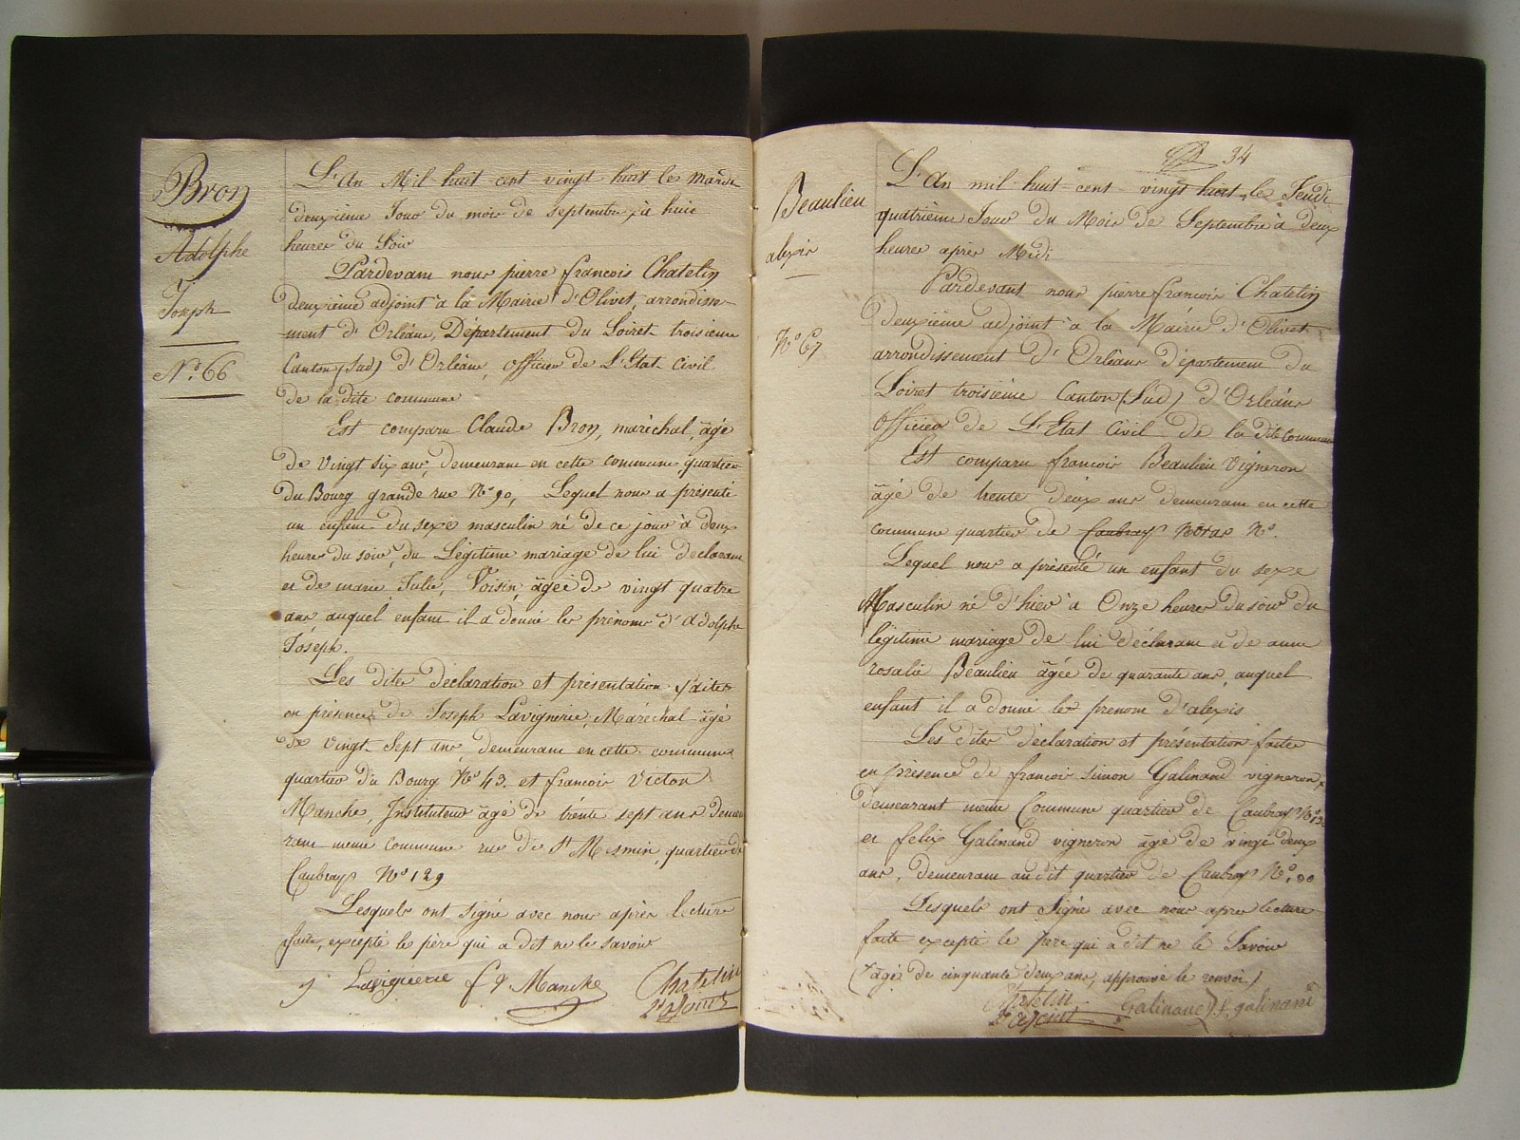 Bron
Adolphe
Joseph
N.º 66
L'An Mil huit cent vingt huit le mardi
deuxième Jour du mois de septembre à huit
heures du Soir
Pardevant nous pierre françois Chatelin
deuxième adjoint à la Mairie d'Olivet, arrondisse-
-ment d'Orléans, Département du Loiret troisieme
Canton (Sud) d'Orléans, officier de L'Etat Civil
de la dite commune
Est comparu Claude Bron, maréchal, âgé
de vingt six ans, demeurant en cette commune, quartier
du Bourg grande rue Nº 90, Lequel nous a présenté
un enfant du sexe masculin né de ce jour à deux
heures du soir, du Légitime mariage de lui déclarant
et de marie Julie, Voisin, âgée de vingt quatre
ans, auquel enfant il a donné les prénoms d'adolphe
Joseph.
Les dites déclaration et présentation faites
en présence de Joseph Lavignerie, Maréchal âgé
de vingt Sept ans, demeurant en cette commune
quartier du Bourg Nº 43. et françois Victor
Manche, Instituteur âgé de trente sept ans demeu
rant même Commune rue de St Mesmin, quartier de
Caubray Nº 129
Lesquels ont signé avec nous après lecture
faite, excepté le père qui a dit ne le savoir
J Lavignerie f V Manche Chatelin
2e adjoint
34
Beaulieu
alexis
Nº 67
L'An mil huit cent vingt huit, le Jeudi
quatrième Jour du Mois de Septembre à deux
heures après Midi
Pardevant nous pierre françois Chatelin
deuxième adjoint à la Mairie d'Olivet
arrondissement d'Orléans département du
Loiret troisième Canton (Sud) d'Orléans
officier de L'Etat Civil de la dite Commune
Est comparu françois Beaulieu Vigneron
âgé de trente deux ans demeurant en cette
commune quartier de Caubray Nº.
Lequel nous a présenté un enfant du sexe
Masculin né d'hier à Onze heures du soir du
légitime mariage de lui déclarant et de anne
rosalie Beaulieu âgée de quarante ans, auquel
enfant il a donné les prenom d'alexis
Les dites déclaration et présentation faites
en présence de françois simon Galinand vigneron,
demeurant même Commune quartier de Caubray
et felix Galinand vigneron âgé de vingt deux
ans, demeurant au dit quartier de Caubray Nº
Lesquels ont Signé avec nous apres lecture
faite excepté le Pere qui a dit ne le Savoir
(âgé de cinquante deux ans, approuvé le renvoi,)
Chatelin Galinand f. galinand
2e adjoint